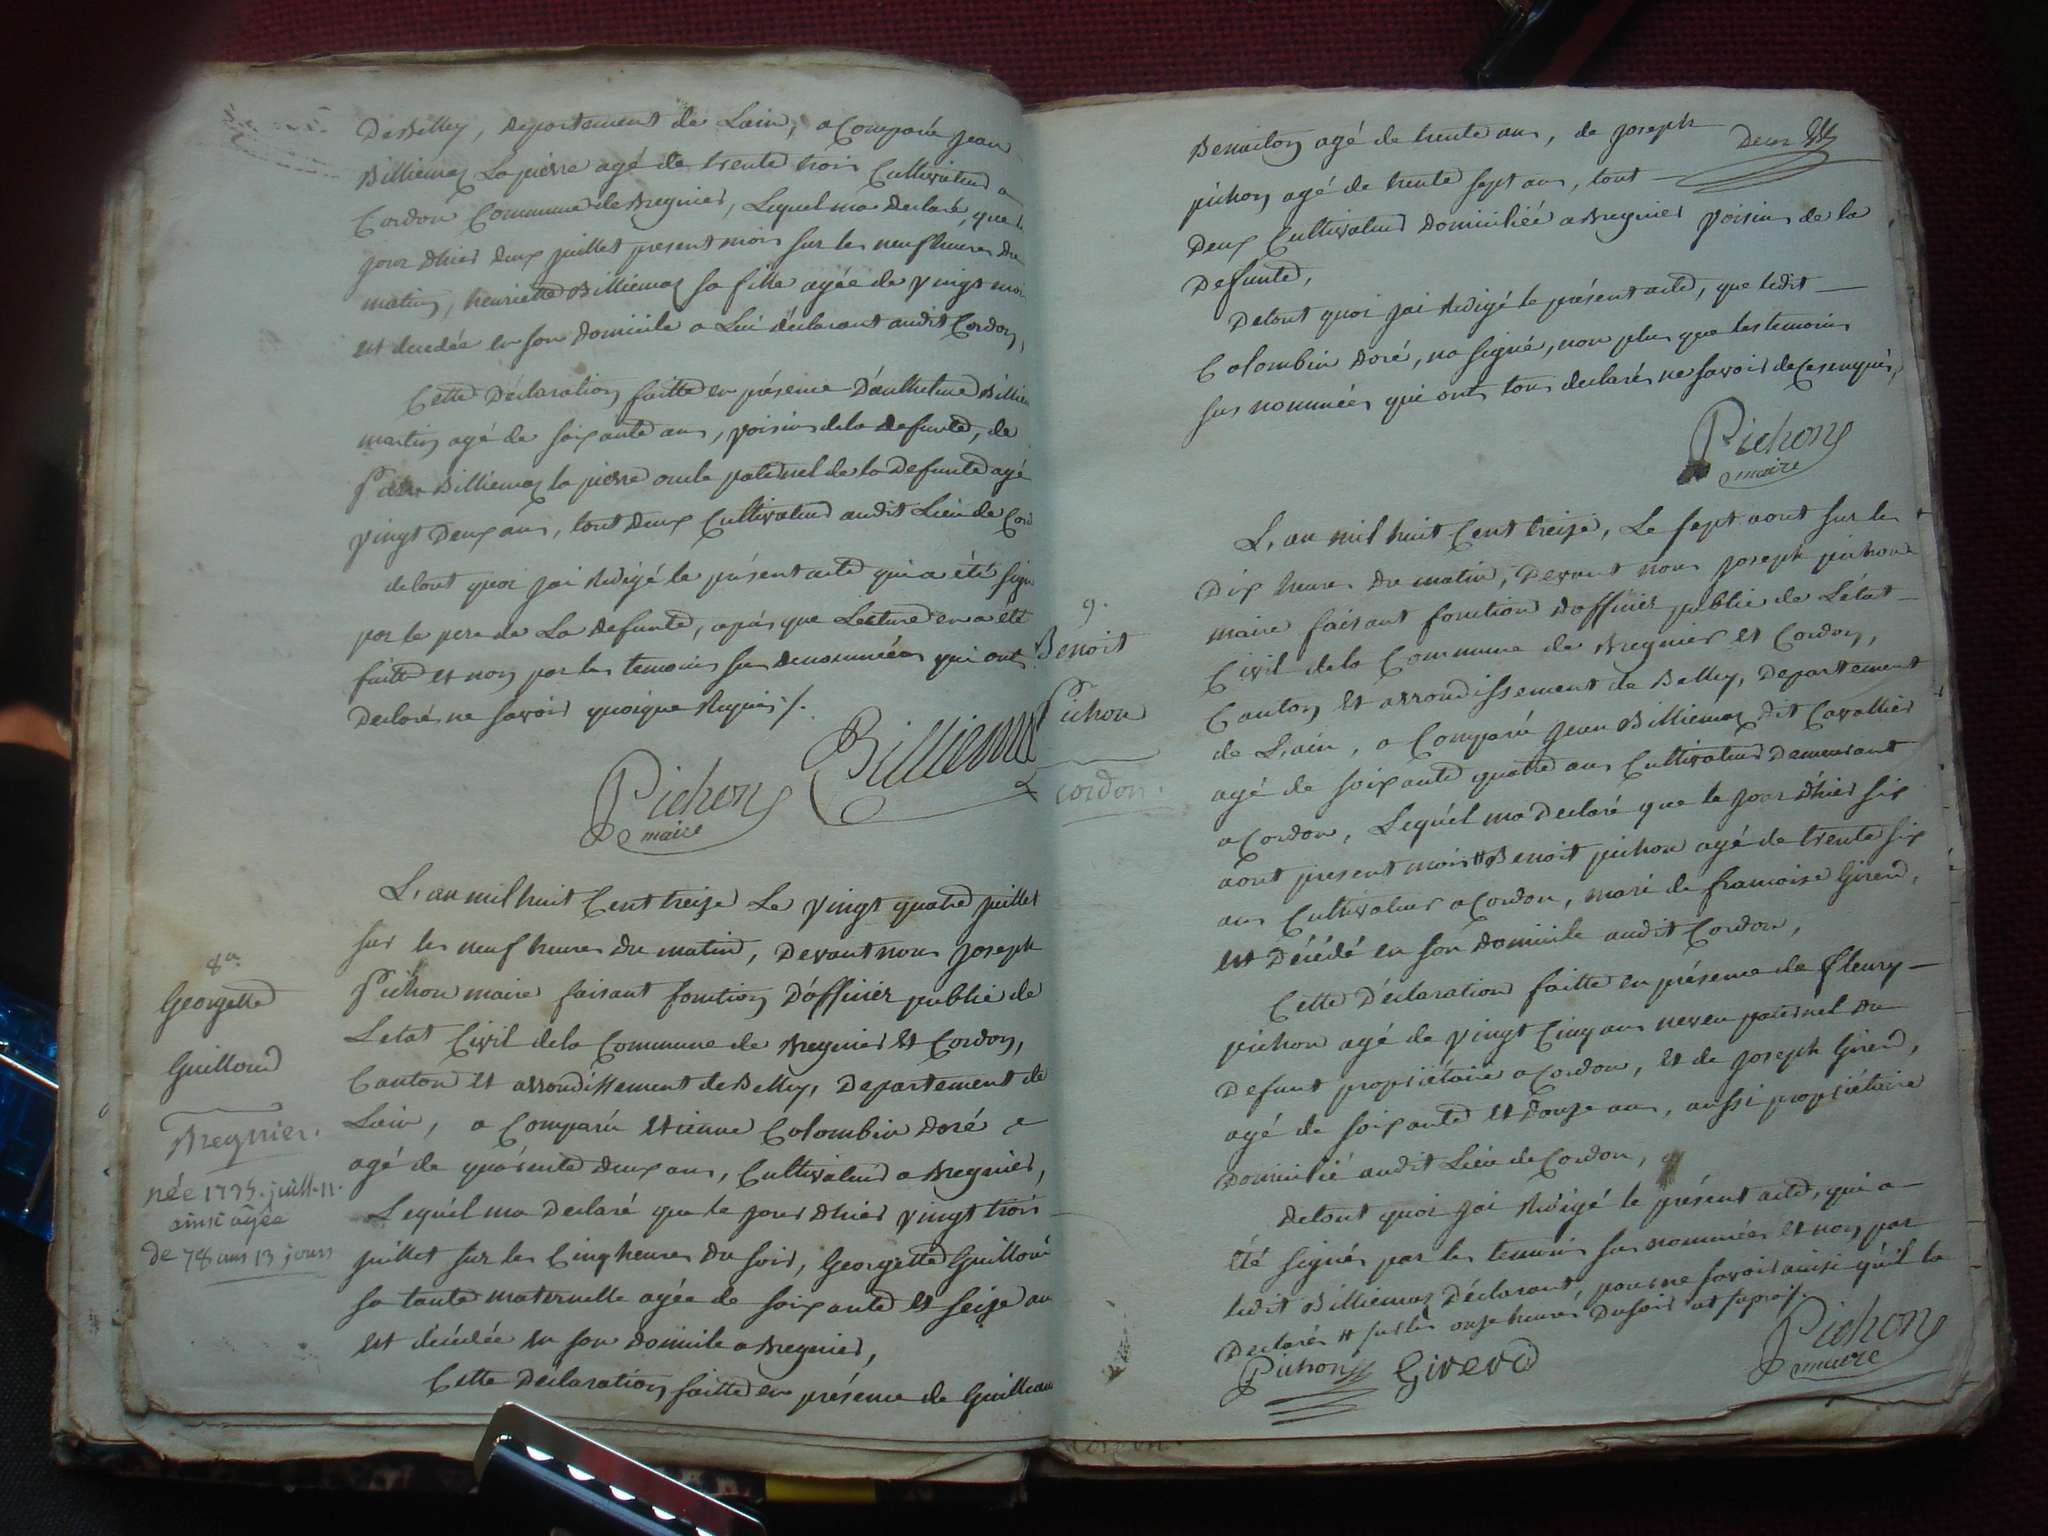 De Belley, departement de Lain, a Comparu Jean
Billiemaz Lapierre agé de trente trois Cultivateur a
Cordon Commune de Bregnier, Lequel ma Declaré, que le
jour dhier deux juillet present mois sur les neuf heures du
matin, henriette Billiemaz sa fille agée de Vingt mois
est decedée en son domicile a Lui déclarant audit Cordon,
Cette Déclaration faitte en présence Danthelme Billiem
martin agé de soixante ans, voisin de la defunte, de
Billiemaz lapierre oncle paternel de la Defunte agé
Vingt Deux ans, tout deux Cultivateur audit Lieu de Cord
detout quoi jai Redigé le présent acte qui a été signé
par le pere de La defunte, après que Lecture en a été
faitte et non par les temoins sus denommées qui ont
Declarés ne savoir quoique Requis /.
Pichon
maire
Billiemaz
8e.
Georgette
Guilloud
Bregnier.
née 1735. juill. 11.
ainsi agée
de 78 ans 13 jours
L'an mil huit Cent treize Le Vingt quatre juillet
sur les neuf heures du matin, Devant nous Joseph
Pichon maire faisant fonction Dofficier public de
Letat Civil de la Commune de Bregnier et Cordon,
Canton et arrondissement de Belley, Departement de
Lain, a Comparu Etienne Colombin Doré
agé de quarente deux ans, Cultivateur a Bregnier,
Lequel ma Declaré que le jour dhier Vingt trois
juillet sur les Cinq heures du soir, Georgette Guilloud
sa tante maternelle agée de soixante et seize ans
est décédée en son domicile a Bregnier,
Cette Déclaration faitte en présence de Guilleaume
Benaiton agé de trente ans, de joseph
Deux
pichon agé de trente sept ans, tout
Deux Cultivateur Domiciliée a Bregnier Voisins de la
Defunte,
Detout quoi jai Redigé le présent acte, que ledit
Colombin Doré, na signé, non plus que les temoins
sus nommées qui ont tous declarés ne savoir de ce enquis,
Pichon
maire
9.
Benoit
Pichon
Cordon.
L'an mil huit Cent treize, Le sept aout sur les
Dix heures du matin, Devant nous Joseph pichon
maire faisant fonction dofficier public de Létat
Civil de la Commune de Bregnier et Cordon,
Canton et arrondissement de Belley, Departement
de L'ain, a Comparu Jean Billiémaz dit Cavallier
agé de soixante quatre ans Cultivateur Demeurant
a Cordon, Lequel ma Declaré que le jour Dhier six
aout present mois # Benoit pichon agé de trente six
ans Cultivateur a Cordon, marié de francoise Girerd,
est Décédé en son domicile audit Cordon,
Cette Déclaration faitte en présence de fleury
pichon agé de Vingt Cinq ans neveu paternel du
Defunt propriétaire a Cordon, et de Joseph Girerd,
agé de soixante et Douze ans, aussi propriétaire
Domicilié audit Lieu de Cordon,
Detout quoi jai Redigé le présent acte, qui a
été signés par les temoins sus nommées et non par
ledit Billiemaz Déclarant, pour ne savoir ainsi quil la
Declaré # sur les onze heures du soir
Pichon Girerd
Pichon
maire